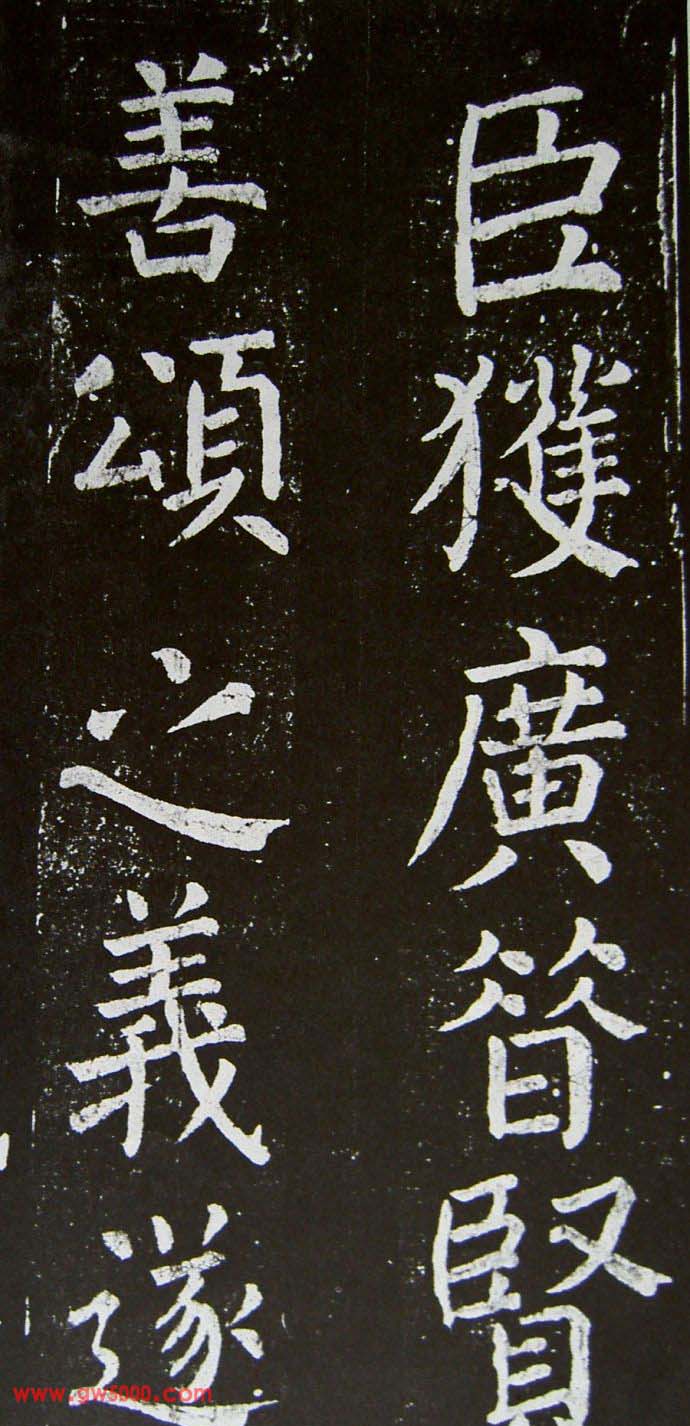 臣獲廣㫺賢
善頌之義遂
www.gw5000.com